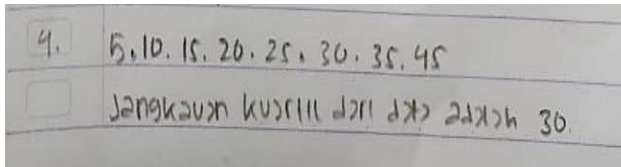 4. 5, 10. 15. 20. 25. 30. 35. 45
Jangkauan kuartil dari data adalah 30.